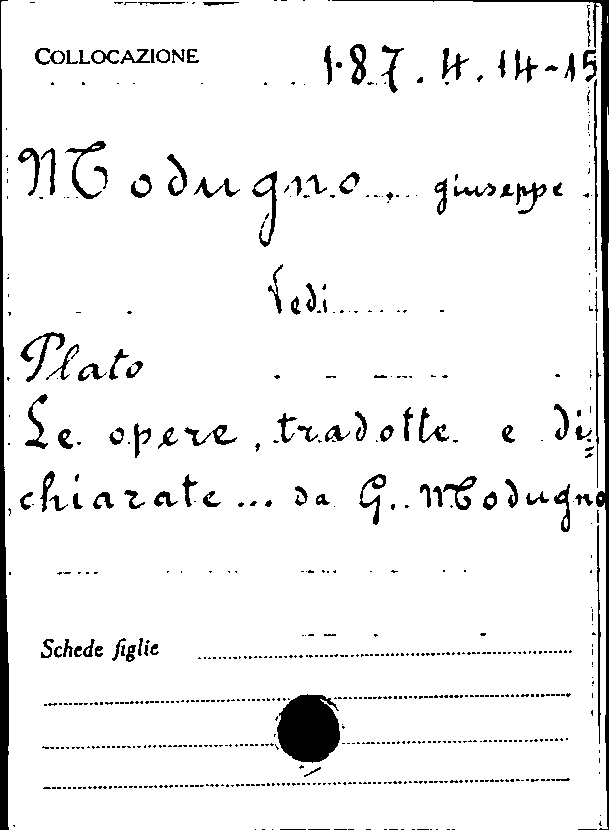 COLLOCAZIONE 187.4.14-15
Modugno, giuseppe
Vedi
Plato
Le opere, tradotte e di=
chiarate... da G. Modugno
Schede figlie